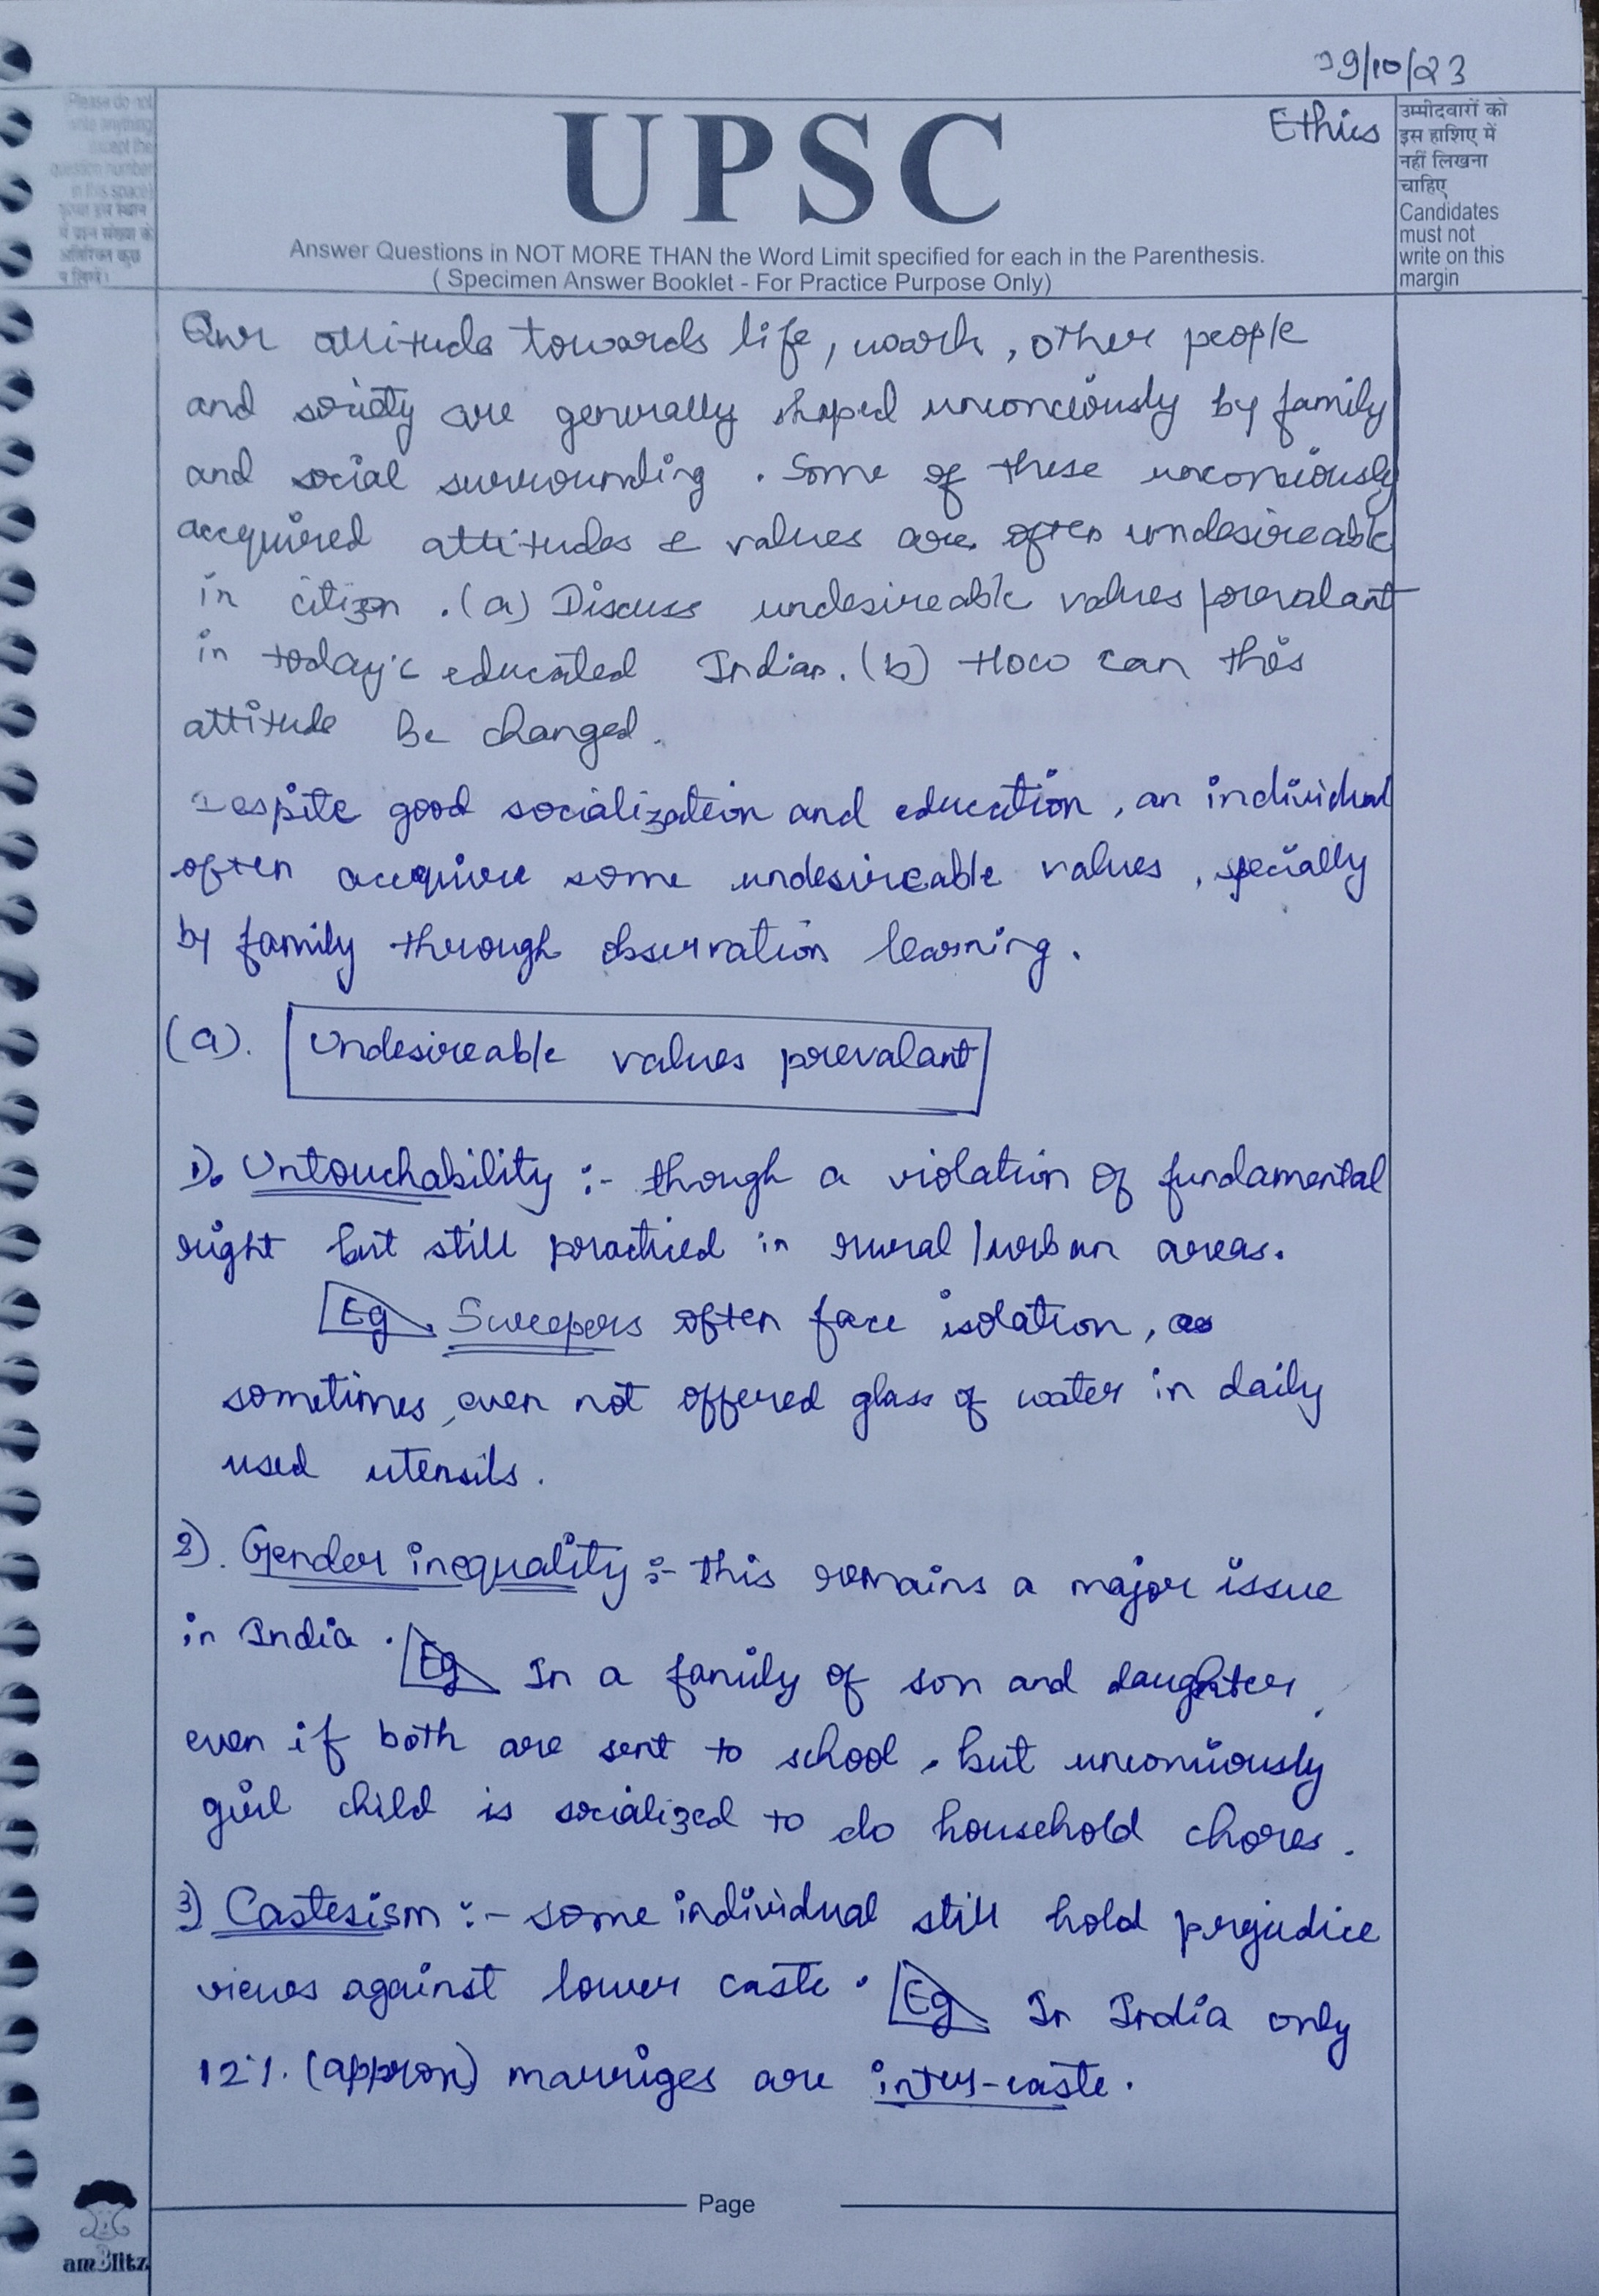 09/10/23
Ethics
Please do not
write anything
except the
question number
in this space)
कृपया इस स्थान
में प्रश्न संख्या के
अतिरिक्त कुछ
न लिखें।
UPSC
Answer Questions in NOT MORE THAN the Word Limit specified for each in the Parenthesis.
( Specimen Answer Booklet - For Practice Purpose Only)
उम्मीदवारों को
इस हाशिए में
नहीं लिखना
चाहिए
Candidates
must not
write on this
margin
Our attitude towards life, work, other people
and society are generally shaped unconciously by family
and social surrounding. Some of these unconsiously
accquired attitudes & values are often undesireable
in citizen. (a) Discuss undesireable values prevalant
in today's educated Indian. (b) How can this
attitude be changed.
Despite good socialization and education, an individual
often accquire some undesireable values, specially
by family through observation learning.
(a). Undesireable values prevalant
1). Untouchability :- though a violation of fundamental
right but still practiced in rural/urban areas.
Eg. Sweepers often face isolation, as
sometimes, even not offered glass of water in daily
used utensils.
2). Gender inequality :- this remains a major issue
in India. Eg In a family of son and daughter,
even if both are sent to school, but unconsiously
girl child is socialized to do household chores.
3) Castesism :- some individual still hold prejudice
views against lower caste. Eg In India only
12%. (approx) marriges are inter-caste.
Page
amBlitz